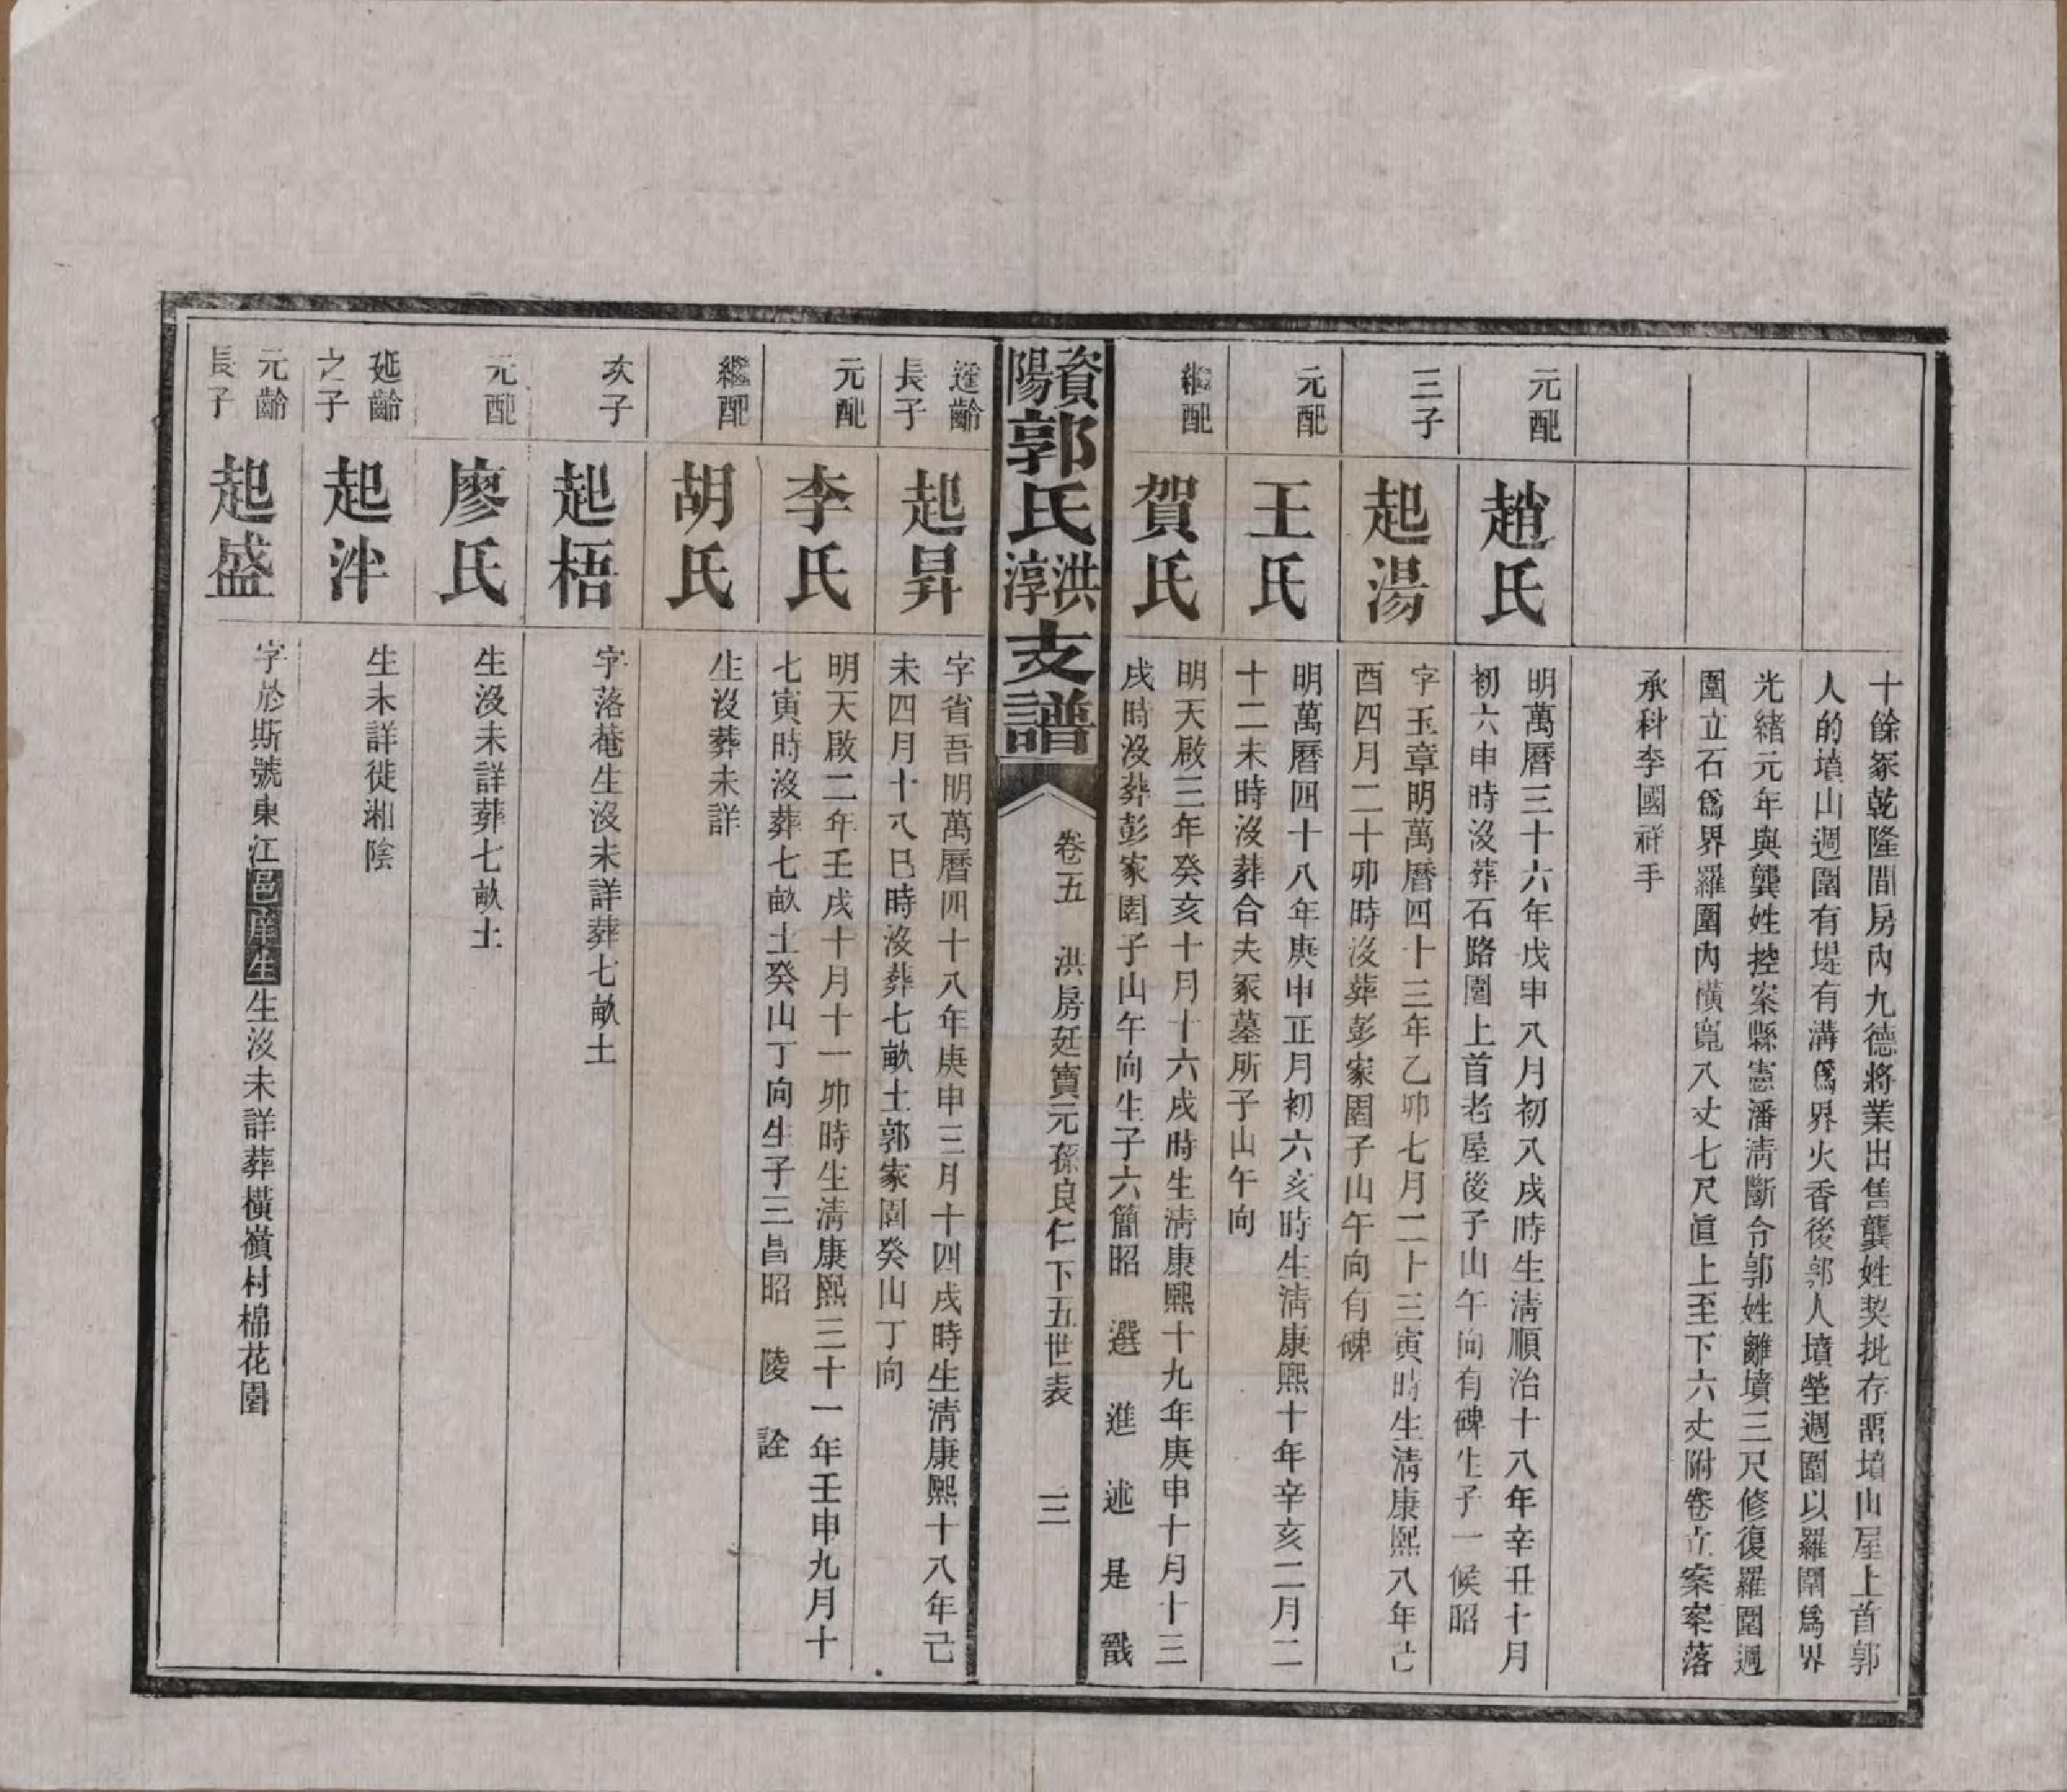 十餘冢乾隆間房內九德將業出售龔姓契批存畱墳山屋上首郭
人的墳山週圍有堤有溝爲界火香後郭人墳塋週圍以羅圍爲界
光緒元年與龔姓控案縣憲潘清斷令郭姓離墳三尺修復羅圍週
圍立石爲界羅圍內橫寬八丈七尺直上至下六丈附卷立案案落
承科李國祥手
元配
趙氏
明萬曆三十六年戊申八月初八戌時生清順治十八年辛丑十月
初六申時沒葬石路園上首老屋後子山午向有碑生子一候昭
三子
起湯
字玉章明萬曆四十三年乙卯七月二十三寅時生清康熙八年己
酉四月二十卯時沒葬彭家園子山午向有碑
元配
王氏
明萬曆四十八年庚申正月初六亥時生清康熙十年辛亥二月二
十二未時沒葬合夫冢墓所子山午向
繼配
賀氏
明天啟三年癸亥十月十六戌時生清康熙十九年庚申十月十三
戌時沒葬彭家園子山午向生子六簡昭 選 進 述 是 戩
資陽郭氏洪淳支譜
卷五 洪房廷寶元孫良仁下五世表 三
遐齡
長子
起昇
字省吾明萬曆四十八年庚申三月十四戌時生清康熙十八年己
未四月十八巳時沒葬七畝土郭家園癸山丁向
元配
李氏
明天啟二年壬戌十月十一卯時生清康熙三十一年壬申九月十
七寅時沒葬七畝土癸山丁向生子三昌昭 陵 詮
繼配
胡氏
生沒葬未詳
次子
起梧
字落菴生沒未詳葬七畝土
元配
廖氏
生沒未詳葬七畝土
延齡
之子
起泮
生未詳徙湘陰
元齡
長子
起盛
字於斯號東江邑庠生生沒未詳葬橫嶺村棉花園